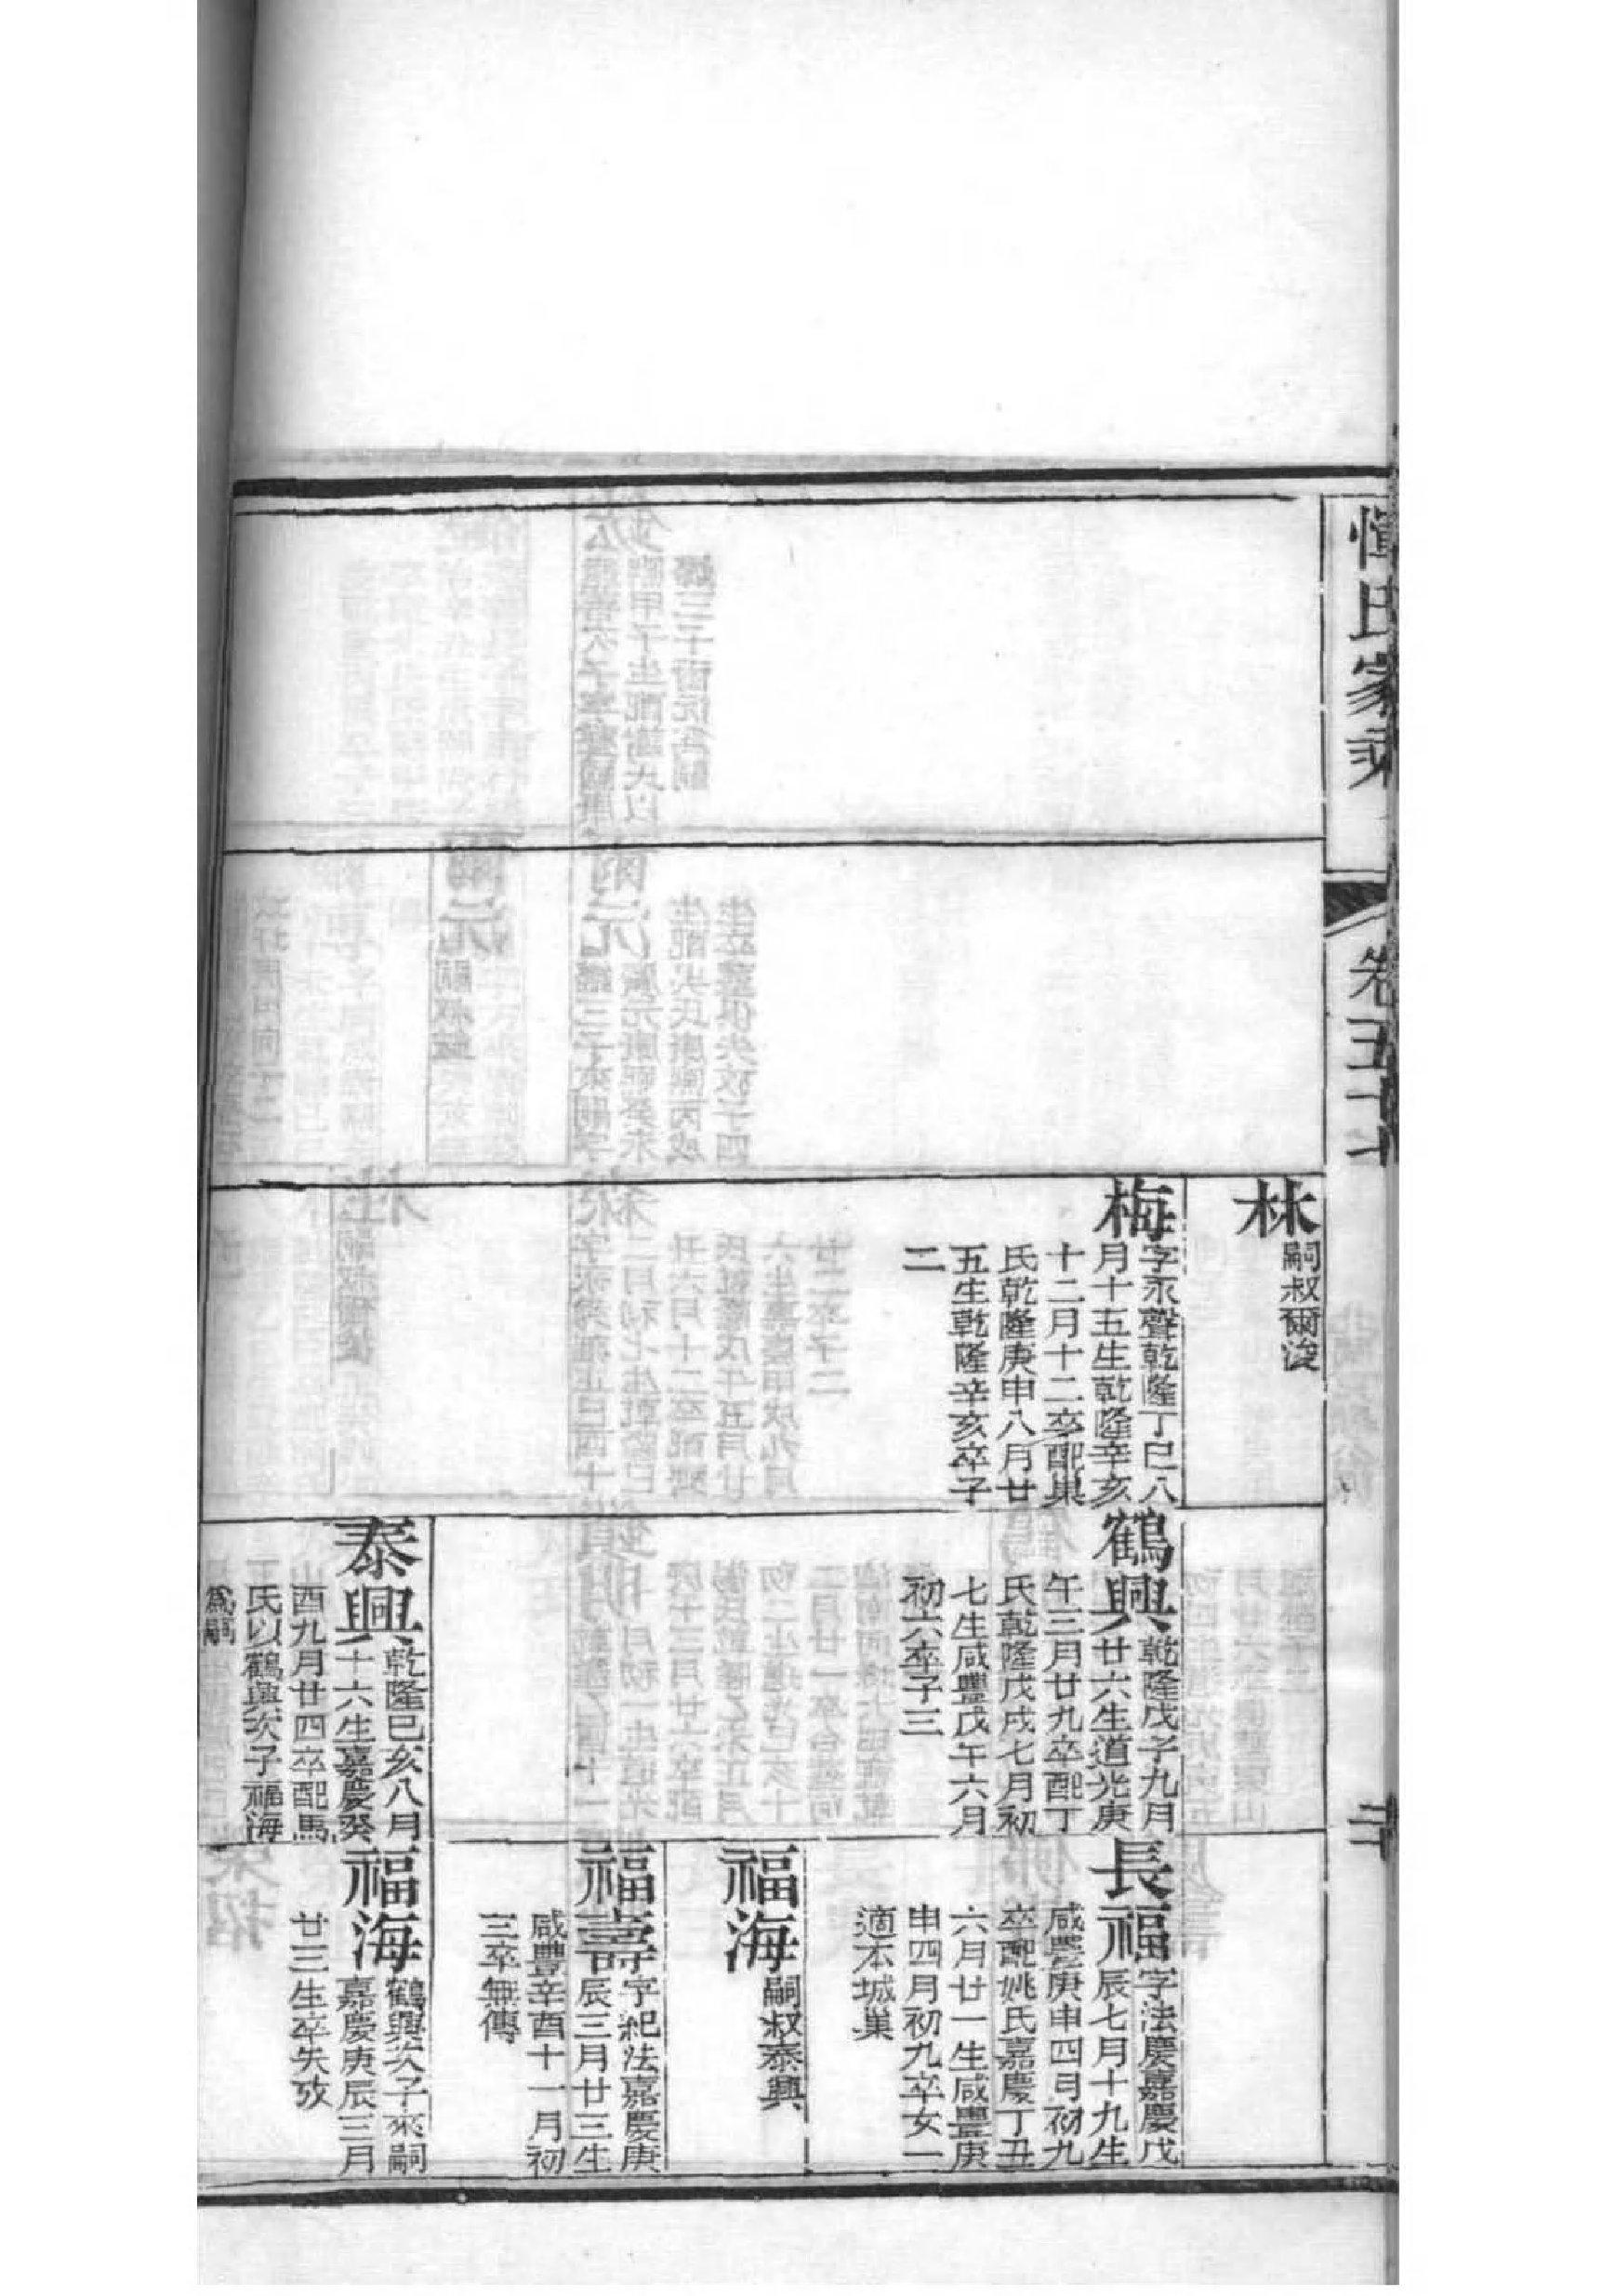 惲氏家乘
卷五十七
二十
林
嗣叔爾浚
梅
字永聲乾隆丁巳八
月十五生乾隆辛亥
十二月十二卒配巢
氏乾隆庚申八月廿
五生乾隆辛亥卒子
二
鶴興
乾隆戊子九月
廿六生道光庚
午三月廿九卒配丁
氏乾隆戊戌七月初
七生咸豐戊午六月
初六卒子三
長福
字法慶嘉慶戊
辰七月十九生
咸豐庚申四月初九
卒配姚氏嘉慶丁丑
六月廿一生咸豐庚
申四月初九卒女一
適本城巢
福海
嗣叔泰興
福壽
字紀法嘉慶庚
辰三月廿三生
咸豐辛酉十一月初
三卒無傳
泰興
乾隆己亥八月
十六生嘉慶癸
酉九月廿四卒配馬
氏以鶴興次子福海
爲嗣
福海
鶴興次子來嗣
嘉慶庚辰三月
廿三生卒失攷